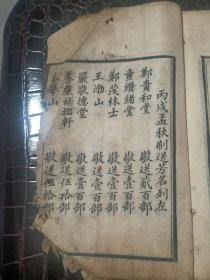 丙戌孟秋刷送芳名列左
鄭貴和堂 敬送貳百部
童纘緒堂 敬送壹百部
鄭茂林士 敬送壹百部
王渤山 敬送壹百部
嚴敬德堂 敬送壹百部
秦廉補梧軒 敬送伍拾部
華山 敬送伍拾部